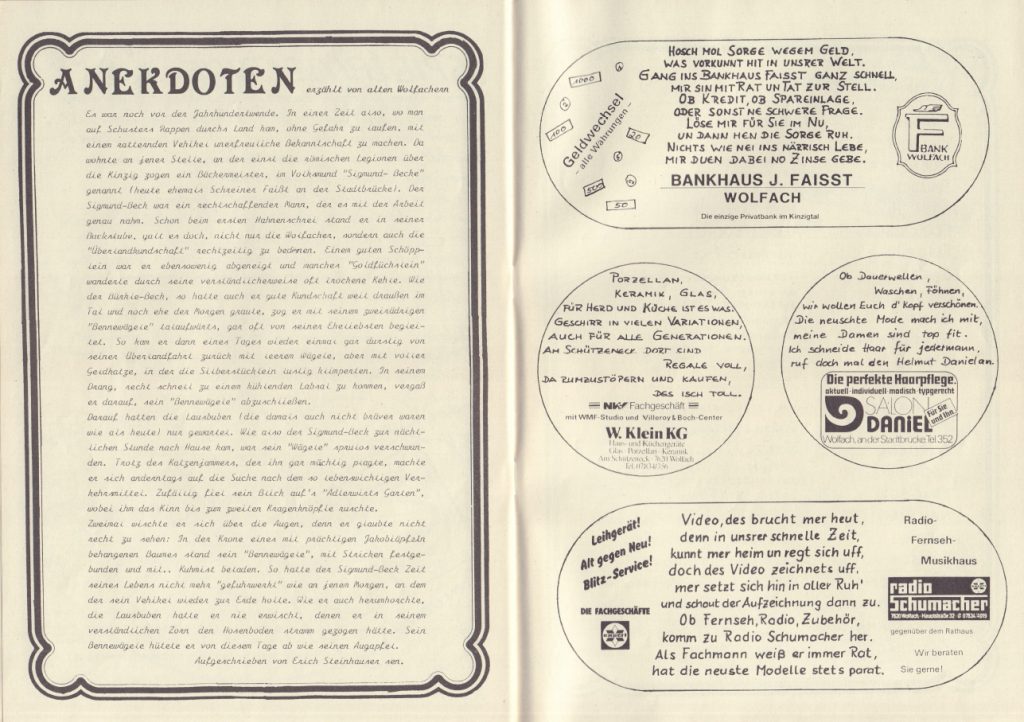 ANEKDOTEN erzählt von alten Wolfachern
Es war noch vor der Jahrhundertwende. In einer Zeit also, wo man
auf Schusters Rappen durchs Land kam, ohne Gefahr zu laufen, mit
einem ratternden Vehikel unerfreuliche Bekanntschaft zu machen. Da
wohnte an jener Stelle, an der einst die römischen Legionen über
die Kinzig zogen ein Bäckermeister, im Volksmund "Sigmund- Becke"
genannt (heute ehemals Schreiner Faißt an der Stadtbrücke). Der
Sigmund-Beck war ein rechtschaffender Mann, der es mit der Arbeit
genau nahm. Schon beim ersten Hahnenschrei stand er in seiner
Backstube, galt es doch, nicht nur die Wolfacher, sondern auch die
"Überlandkundschaft" rechtzeitig zu bedienen. Einem guten Schöpp-
lein war er ebensowenig abgeneigt und manches "Goldfüchslein"
wanderte durch seine verständlicherweise oft trockene Kehle. Wie
der Bührle-Beck, so hatte auch er gute Kundschaft weit draußen im
Tal und noch ehe der Morgen graute, zog er mit seinem zweirädrigen
"Bennewägele" talaufwärts, gar oft von seiner Eheliebsten beglei-
tet. So kam er dann eines Tages wieder einmal gar durstig von
seiner Überlandfahrt zurück mit leerem Wägele, aber mit voller
Geldkatze, in der die Silberstücklein lustig klimperten. In seinem
Drang, recht schnell zu einem kühlenden Labsal zu kommen, vergaß
er darauf, sein "Bennewägele" abzuschließen.
Darauf hatten die Lausbuben (die damals auch nicht bräver waren
wie als heute) nur gewartet. Wie also der Sigmund-Beck zur nächt-
lichen Stunde nach Hause kam, war sein "Wägele" spurlos verschwun-
den. Trotz des Katzenjammers, der ihn gar mächtig plagte, machte
er sich anderntags auf die Suche nach dem so lebenswichtigen Ver-
kehrsmittel. Zufällig fiel sein Blick auf's "Adlerwirts Garten",
wobei ihm das Kinn bis zum zweiten Kragenknöpfle rutschte.
Zweimal wischte er sich über die Augen, denn er glaubte nicht
recht zu sehen: In der Krone eines mit prächtigen Jakobiäpfeln
behangenen Baumes stand sein "Bennewägele", mit Stricken festge-
bunden und mit.. Kuhmist beladen. So hatte der Sigmund-Beck Zeit
seines Lebens nicht mehr "gefuhrwerkt" wie an jenem Morgen, an dem
der sein Vehikel wieder zur Erde holte. Wie er auch herumhorchte,
die Lausbuben hatte er nie erwischt, denen er in seinem
verständlichen Zorn den Hosenboden stramm gezogen hätte. Sein
Bennewägele hütete er von diesem Tage ab wie seinen Augapfel.
Aufgeschrieben von Erich Steinhauser sen.
HOSCH MOL SORGE WEGEM GELD,
WAS VORKUNNT HIT IN UNSRER WELT.
GANG INS BANKHAUS FAISST GANZ SCHNELL,
MIR SIN MIT RAT UN TAT ZUR STELL.
OB KREDIT, OB SPAREINLAGE,
ODER SONST NE SCHWERE FRAGE.
LÖSE MIR FÜR SIE IM NU,
UN DANN HEN DIE SORGE RUH.
NICHTS WIE NEI INS NÄRRISCH LEBE,
MIR DUEN DABEI NO ZINSE GEBE.
BANKHAUS J. FAISST
WOLFACH
Die einzige Privatbank im Kinzigtal
Geldwechsel
- alle Währungen -
1000
100
20
50
F
BANK
WOLFACH
PORZELLAN,
KERAMIK, GLAS,
FÜR HERD UND KÜCHE IST ES WAS.
GESCHIRR IN VIELEN VARIATIONEN,
AUCH FÜR ALLE GENERATIONEN.
AM SCHÜTZENECK DORT SIND
REGALE VOLL,
DA ZUMZUSTÖPERN UND KAUFEN,
DES ISCH TOLL.
NKF Fachgeschäft
mit WMF-Studio und Villeroy & Boch-Center
W. Klein KG
Haus- und Küchengeräte
Glas · Porzellan · Keramik
Am Schützeneck · 7620 Wolfach
Tel. 07834/356
Ob Dauerwellen,
Waschen, Föhnen,
wir wollen Euch d' Kopf verschönen.
Die neuschte Mode mach ich mit,
meine Damen sind top fit.
Ich schneide Haar für jedermann,
ruf doch mal den Helmut Daniel an.
Die perfekte Haarpflege.
aktuell·individuell·modisch·typgerecht
SALON
DANIEL
Für Sie
und Ihn
Wolfach, an der Stadtbrücke Tel 352
Leihgerät!
Alt gegen Neu!
Blitz-Service!
DIE FACHGESCHÄFTE
expert
Video, des brucht mer heut,
denn in unsrer schnelle Zeit,
kunnt mer heim un regt sich uff,
doch des Video zeichnets uff.
mer setzt sich hin in aller Ruh'
und schaut der Aufzeichnung dann zu.
Ob Fernseh, Radio, Zubehör,
komm zu Radio Schumacher her.
Als Fachmann weiß er immer Rat,
hat die neuste Modelle stets parat.
Radio-
Fernseh-
Musikhaus
radio
Schumacher
7620 Wolfach · Hauptstraße 32
gegenüber dem Rathaus
Wir beraten
Sie gerne!